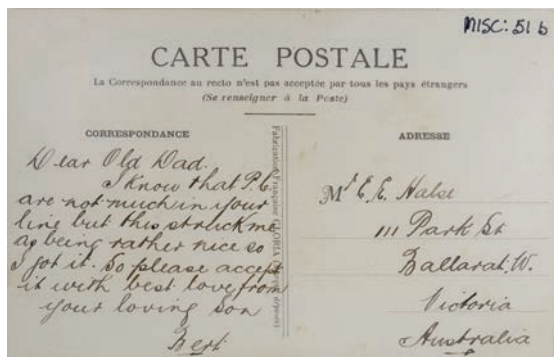 MISC: 51 b
CARTE POSTALE
La Correspondance au recto n'est pas acceptée par tous les pays étrangers
(Se renseigner à la Poste)
CORRESPONDANCE
Dear Old Dad.
I know that P.C.
are not much in your
line but this struck me
as being rather nice so
I got it. So please accept
it with best love from
your loving son
Bert
Fabrication Française GLORIA
ADRESSE
Mr E. E. Halse
111 Park St
Ballarat. W.
Victoria
Australia